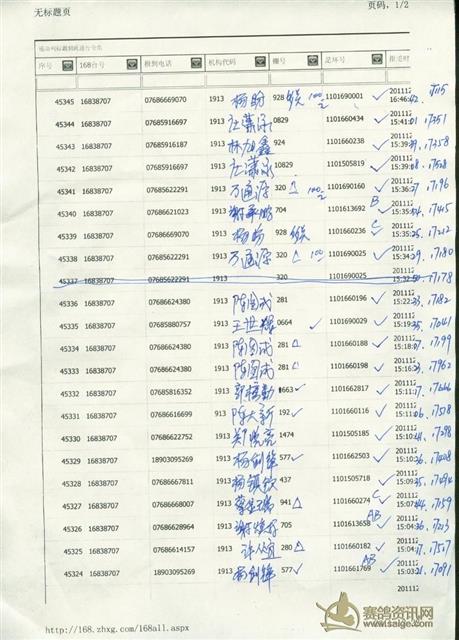 无标题页 页码，1/2
序号 168台号 报到电话 机构代码 棚号 足环号 报道时
45345 16838707 07686669070 1913 杨盼 928 1101690001 201112 16:46:02
45344 16838707 07685916697 1913 0829 1101660434 201112 15:41:01 17351
45343 16838707 07685916187 1913 林旭鑫 924 1101660238 201112 15:39:39 17358
45342 16838707 07685916697 1913 1101505819 201112 15:39:08 17528
45341 16838707 07685622291 1913 万通源 320 1101690160 201112 15:36:27 17196
45340 16838707 07686621023 1913 704 1101613692 B 201112 15:35:54 17445
45339 16838707 07686669070 1913 杨盼 928 1101660236 C 201112 15:35:25 17212
45338 16838707 07685622291 1913 万通源 320 100 1101690025 201112 15:34:29 17180
45337 16838707 07685622291 1913 320 1101690025 201112 15:32:50 17178
45336 16838707 07686624380 1913 281 1101660196 201112 15:22:33 17182
45335 16838707 07685880757 1913 王世辉 0664 1101690029 201112 15:19:35 17041
45334 16838707 07686624380 1913 281 1101660188 201112 15:18:07 17199
45333 16838707 07686624380 1913 281 1101660198 201112 15:16:21 17962
45332 16838707 07685816352 1913 663 1101662817 201112 15:11:17 17666
45331 16838707 07686616699 1913 陈大新 192 1101660116 201112 15:11:06 17518
45330 16838707 07686622752 1913 郑晓亮 1474 1101505185 201112 15:10:41 17298
45329 16838707 18903095269 1913 杨剑锋 577 1101662503 201112 15:10:36 17408
45328 16838707 07686667811 1913 杨镇钦 437 1101505718 201112 15:09:35 17494
45327 16838707 07686668007 1913 941 1101660274 C 201112 15:07:44 17159
45326 16838707 07686628964 1913 705 1101613658 AB 201112 15:04:36 17213
45325 16838707 07686614157 1913 280 1101660182 201112 15:04:17 17507
45324 16838707 18903095269 1913 杨剑锋 577 1101661769 AB 201112 15:03:21 17091
201112
http://168.zhxg.com/168all.aspx
赛鸽资讯网
www.saige.com